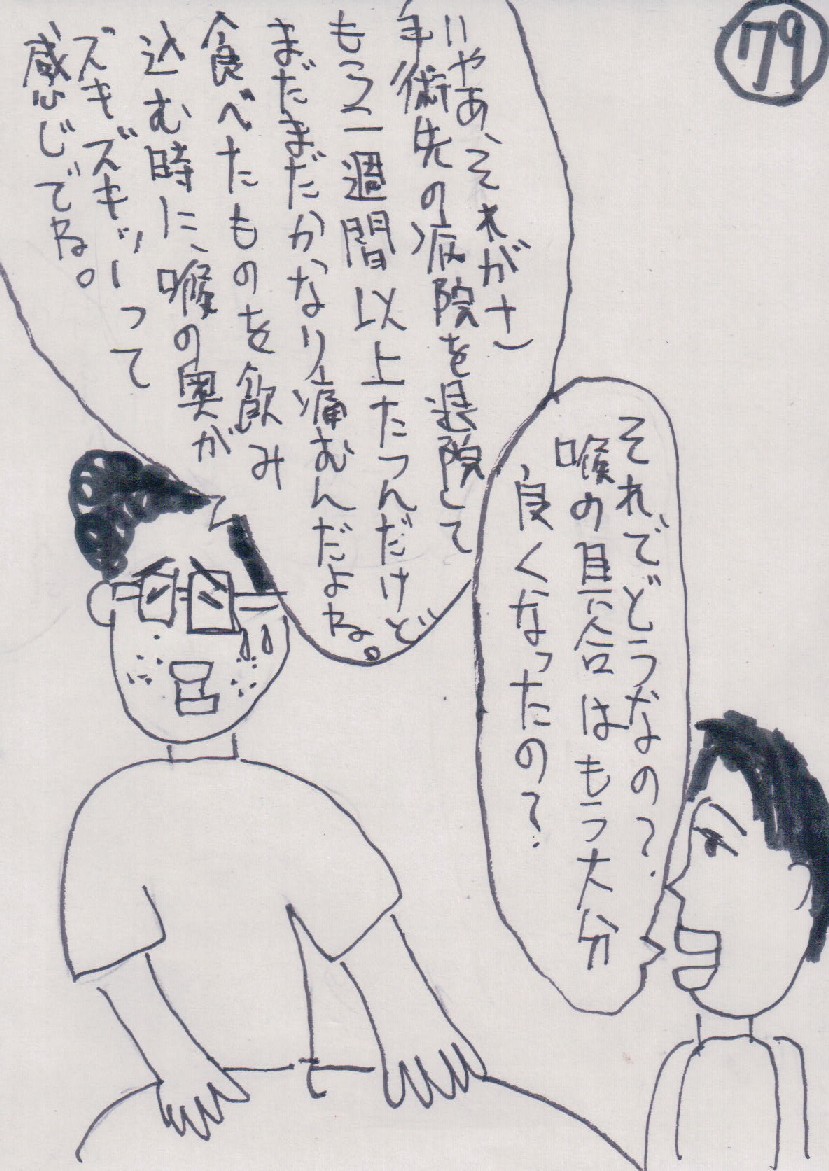 79
それでどうなの？
喉の具合はもう大分
良くなったの？
いやあ、それがさ、
手術先の病院を退院して
もう一週間以上たつんだけど
まだまだかなり痛むんだよね。
食べたものを飲み
込む時に、喉の奥が
ズキズキッーって
感じでね。